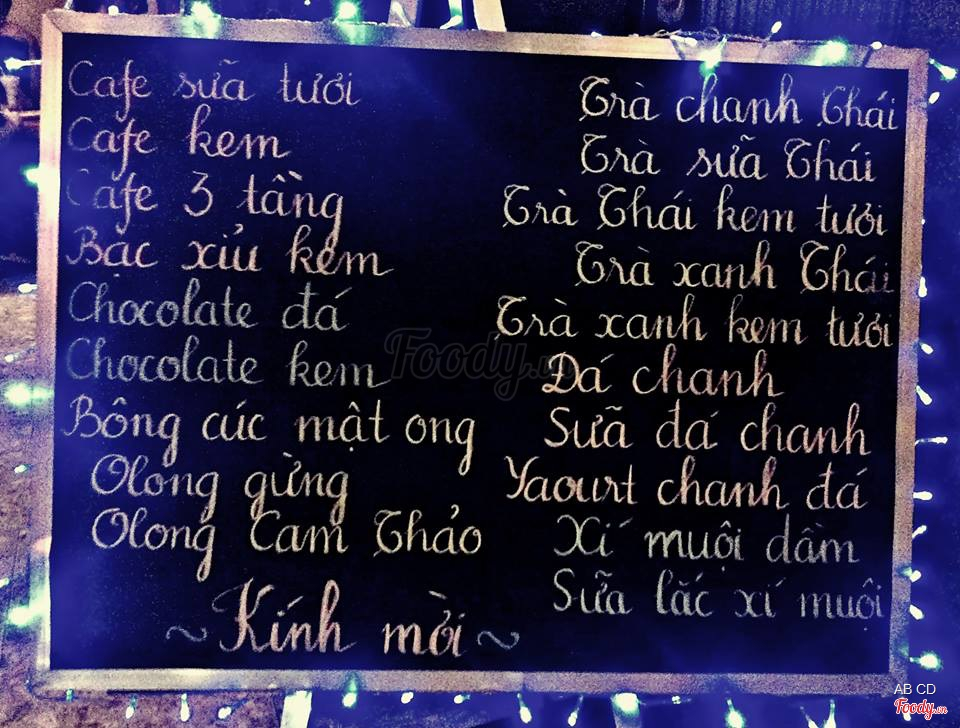 Cafe sữa tươi
Cafe kem
Cafe 3 tầng
Bạc xỉu kem
Chocolate đá
Chocolate kem
Bông cúc mật ong
Olong gừng
Olong Cam Thảo
~ Kính mời ~
Trà chanh Thái
Trà sữa Thái
Trà Thái kem tươi
Trà xanh Thái
Trà xanh kem tươi
Đá chanh
Sữa đá chanh
Yaourt chanh đá
Xí muội dầm
Sữa lắc xí muội
Foody.vn
AB CD
Foody.vn